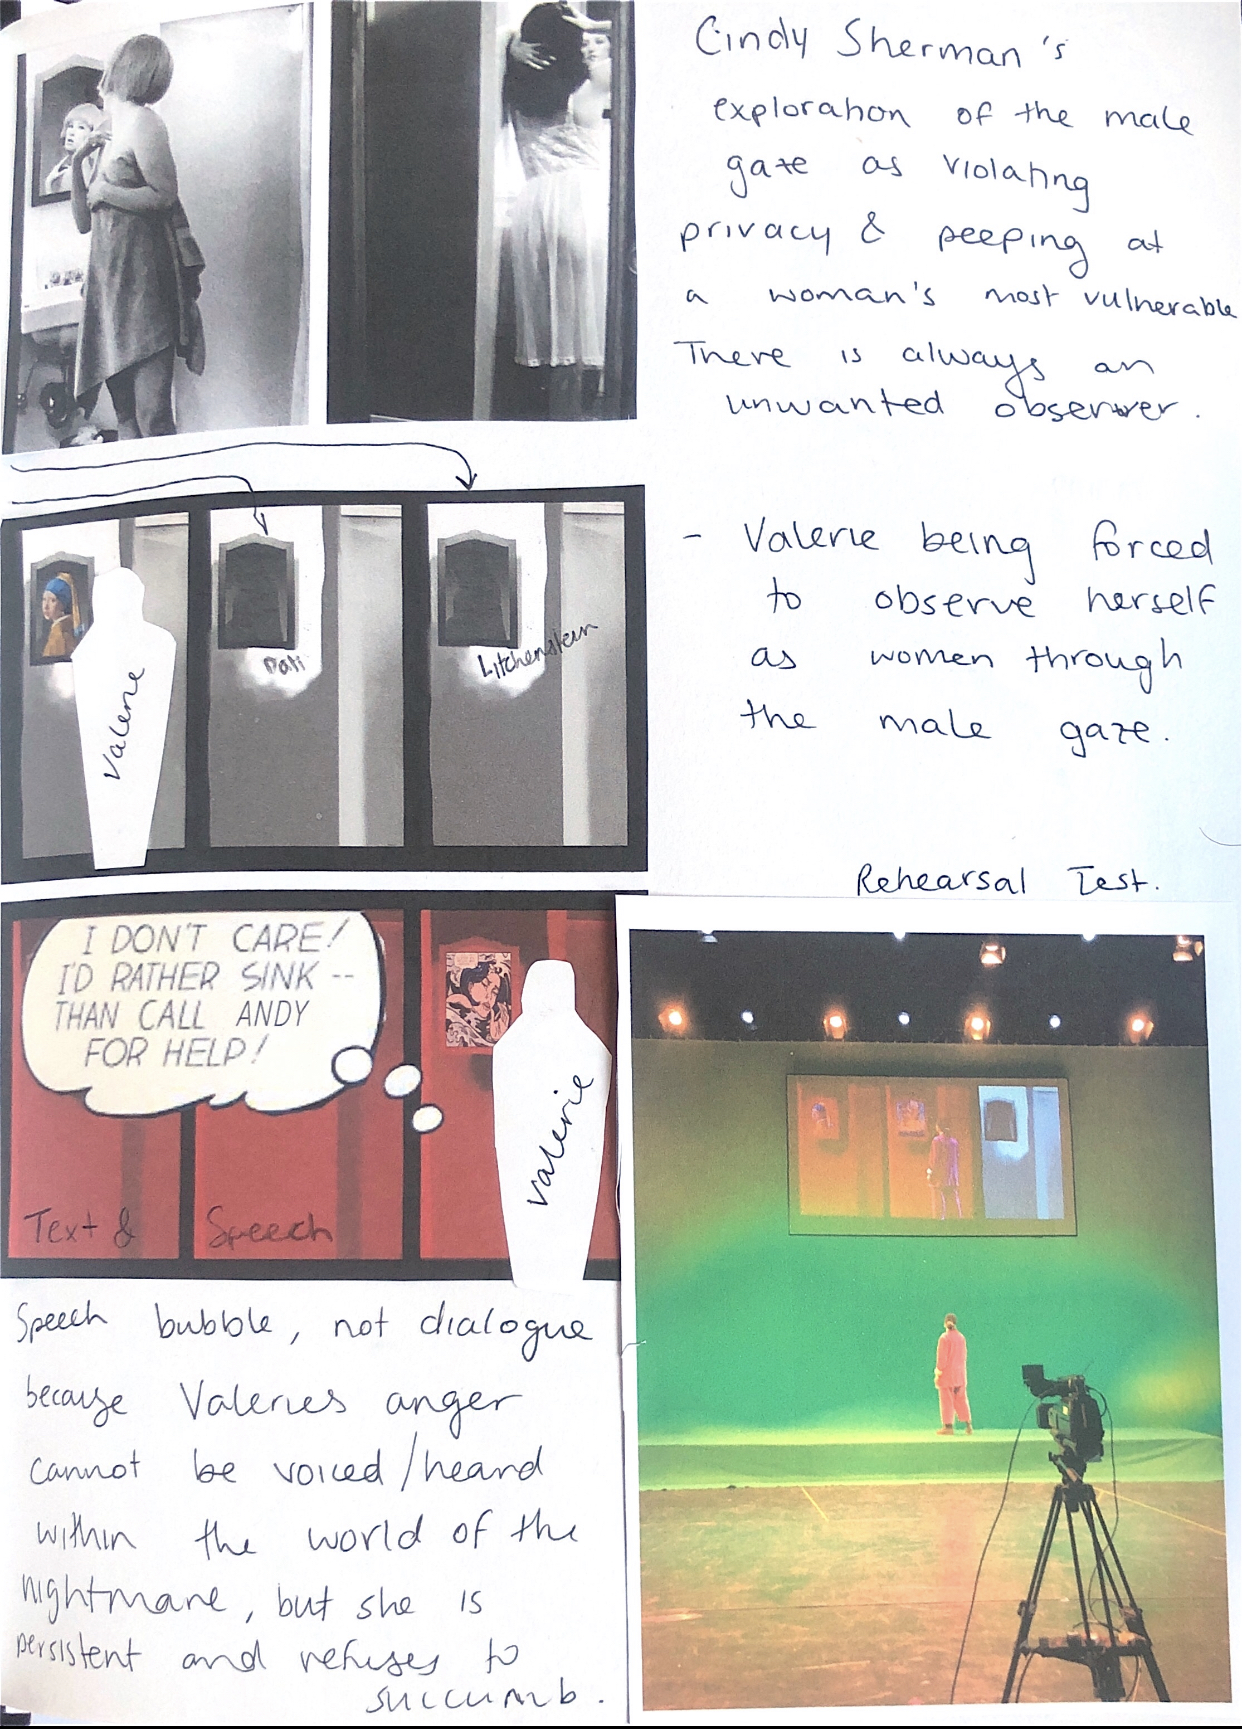 Cindy Sherman's
exploration of the male
gaze as violating
privacy & peeping at
a woman's most vulnerable
There is always an
unwanted observer.
- Valerie being forced
to observe herself
as women through
the male gaze.
Valerie
Dali
Litchenstein
Rehearsal Test.
I DON'T CARE!
I'D RATHER SINK --
THAN CALL ANDY
FOR HELP!
Valerie
Text & Speech
Speech bubble, not dialogue
because Valeries anger
cannot be voiced/heard
within the world of the
nightmare, but she is
persistent and refuses to
succumb.